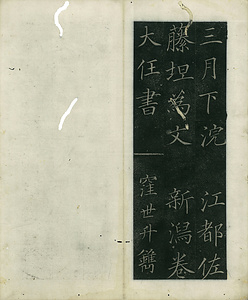 三月下浣　江都佐
藤坦為文　新潟卷
大任書　窪世升鐫